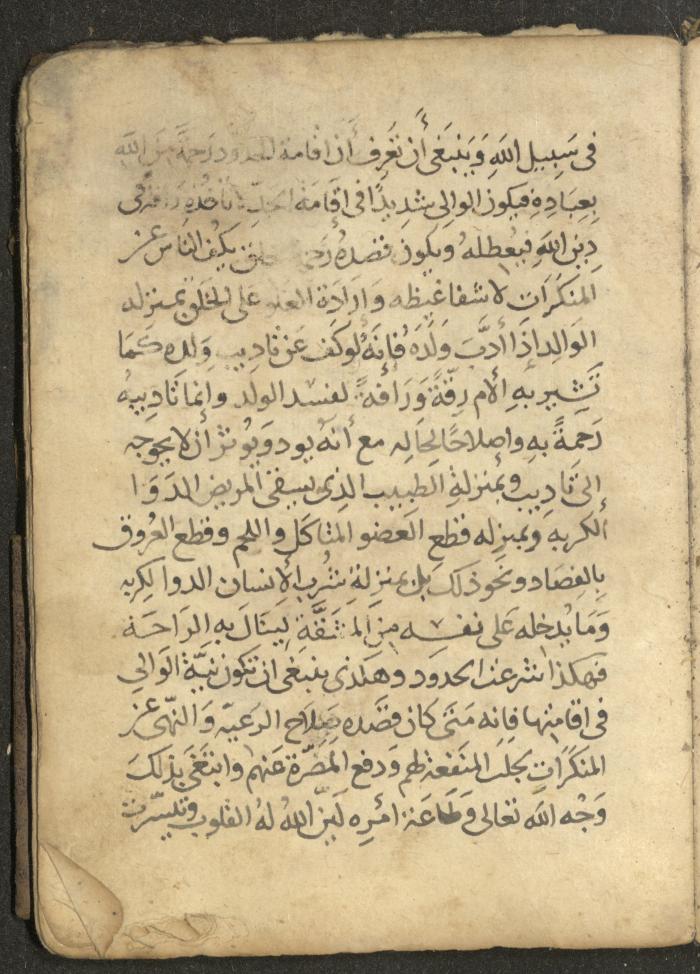 في سَبِيل اللهِ وَيَنبَغي أن تَعَرف أن اقامة الحدود رَحمَةً مِنَ الله
بِعِبَادِهِ فيكون الوالي شدِيدًا في اقَامَة الحدِّ لا تاخذهِ رَافة في
دِين اللهِ فيُعطلهُ ويكون قصدهُ رَحمة الخلق بكف الناس عن
المنكرَات لا شفا غيظه وَارَادَة العلو على الخلق بمنزله
الوَالد إذَا أدَّبَ وَلَدَهُ فإنهُ لو كَف عَن تاديب ولده كما
تشير بهِ الأم رِقَّةً وَرَافةً لفسد الولد وإنما تَادِيبهُ
رَحمةً بهِ وإصلاحًا لِحَاله مع أنهُ يود وَيُوثر أن لا يحوجه
إلى تَادِيب وبمنزلةِ الطبِيب الذِى يسقي المريض الدَوَا
الكريه وبمنزله قطع العضو المتاكل واللحم وقطع العُروق
بالفِصَاد ونحو ذلك بل بمنزلة شُربِ الأنسان الدوا لكريه
وَمَا يُدخله عَلى نفسه مِنَ المشقَّة ليَنال به الرَاحَة
فهكذا شرعت الحدود وهكذى ينبغي ان تكون نيَّة الوَالي
في اقامتها فانه مَتى كان قصَده صلاح الرَعيّه وَالنهى عن
المنكرَاتِ بجلب المنفعة لهم وَدفع المَضَرّة عَنهم وابتغَى بذلكَ
وَجه الله تعالى وَطاعَة امره ليَّن اللهُ لهُ القلوب وتيسَّرت